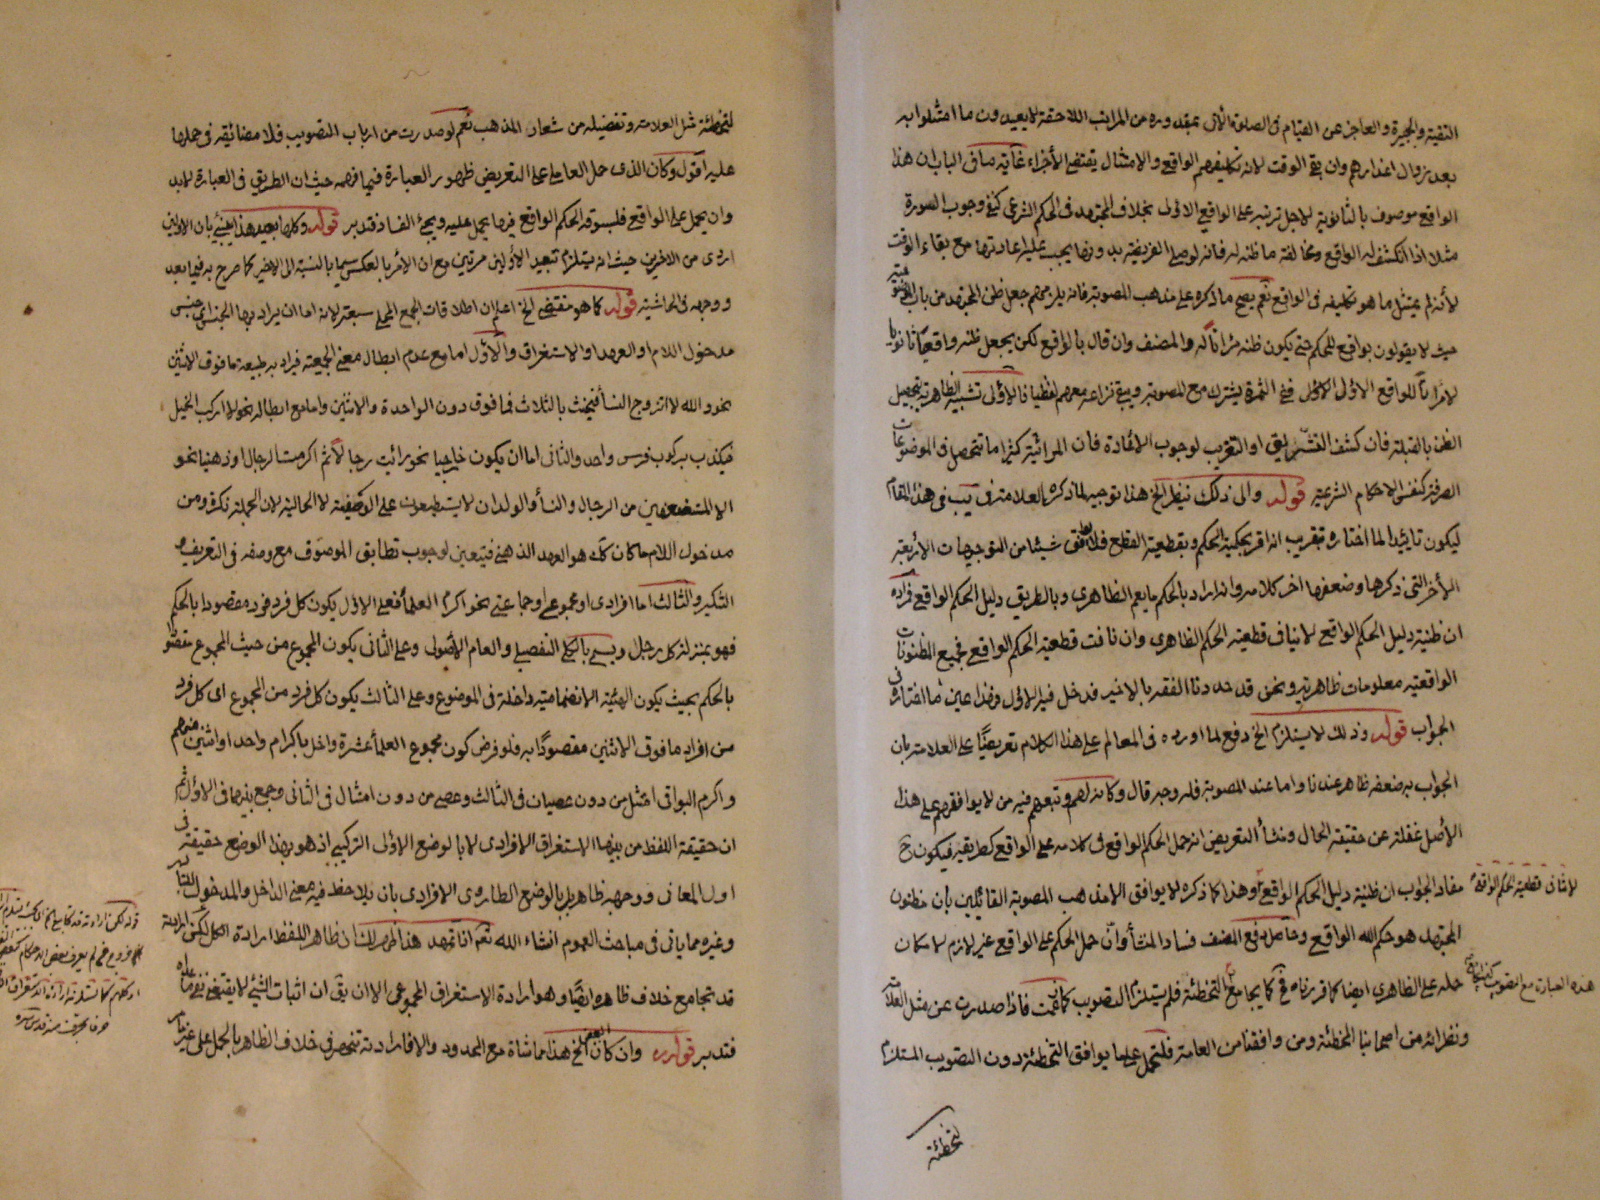 التقية والجبيرة والعاجز عن القيام فى الصلوة الآتى بمقدوره من المراتب اللاحقة لا يعيدون ما امتثلوا به
بعد زوال اعذارهم وان بقى الوقت لانه تكليفهم الواقعى والامتثال يقتضى الأجزاء غاية ما فى الباب ان هذا
الواقع موصوف بالثانوية لاجل ترتبه على الواقعى الاولى بخلاف المجتهد فى الحكم الشرعى كنفى وجوب السورة
مثلا اذا انكشف له الواقع ومخالفة ما ظنه له فانه لو صلى الفريضة بدونها يجب عليه اعادتها مع بقاء الوقت
لأنه لم يمتثل ما هو تكليفه فى الواقع نعم يصح ما ذكره على مذهب المصوبة فانه يلزمهم جعل ظن المجتهد من باب
حيث لا يقولون بواقع للحكم حتى يكون ظنه مرآتا له والمصنف وان قال بالواقع لكن يجعل ظنه واقعيا ثانويا
لا مرآتا للواقع الاولى ففى الثمرة يشترك مع المصوبة ويبقى نزاعه معهم لفظيا فالأولى تشبيه الظاهرية بتحصيل
الظن بالقبلة فان كشف التشريق او التغريب لوجوب الاعادة فان المرآتية كثيرا ما تتحصل فى الموضوعات
الصرفة كنفس الاحكام الشرعية قوله والى ذلك ينظر الخ هذا توجيه لما ذكره العلامة فى يب فى هذا المقام
ليكون تاييدا لما اختاره بتقريب انه اقر بحكمية الحكم وبقطعية القطع فلا يوافق شيئا من التوجيهات الأربعة
الأخر التى ذكرها وضعفها اخر كلامه وانه اراد بالحكم ما يعم الظاهرى وبالطريق دليل الحكم الواقعى فمراده
ان ظنية دليل الحكم الواقعى لا ينافى قطعية الحكم الظاهرى وان نافت قطعية الحكم الواقعى فجميع الظنونات
الواقعية معلومات ظاهرية ونحن قد حددنا الفقه بالاخير فدخل فيه الاول وهذا عين ما اختاره فى
الجواب قوله وذلك لا يستلزم الخ دفع لما اورده فى المعالم على هذا الكلام تعريضا على العلامة بان
الجواب به ضعفه ظاهر عندنا واما عند المصوبة فله وجه قال وكانه لهم وتبعهم فيه من لا يوافقهم على هذا
الأصل غفلة عن حقيقة الحال ومنشأ التعريض انه حمل الحكم الواقع فى كلامه على الواقعى كطريقه فيكون ح
مفاد الجواب ان ظنية دليل الحكم الواقعى وهذا كما ذكره لا يوافق الا مذهب المصوبة القائلين بأن مظنون
لا ينافى قطعية الحكم الواقعى
المجتهد هو حكم الله الواقعى وحاصل دفع المصنف فساد المنشأ وان حمل الحكم على الواقعى غير لازم لامكان
حمله على الظاهرى ايضا كما قررناه فح كما يجامع التخطئة فلم يستلزم التصويب كما زعمت فاذا صدرت عن مثل العلامة
هذه العبارة مع التصويب
ونظرائه من اصحابنا المخطئة ومن وافقنا من العامة فلتحمل على ما يوافق التخطئة دون التصويب المستلزم
لتخطئة
لتخطئة مثل العلامة وتفضيله من شعار المذهب نعم لو صدرت من ارباب التصويب فلا مضائقة فى حملها
عليه اقول وكان الذى حمل العاملى على التعريض ظهور العبارة فيما فهمه حيث ان الطريق فى العبارة لابد
وان يحمل على الواقعى فلمسبوقه الحكم الواقع فيها يحمل عليه ويجئ الفساد فتدبر قوله وكلها بعيد هذا ينبئ بان الاولين
اردى من الاخرين حيث انه يستلزم تبعيد الأولين مرتين مع ان الأمر بالعكس سيما بالنسبة الى الاخير كما صرح به فيما بعد
ووجهه فى الحاشية قوله كما هو مقتضى الخ اعلم ان اطلاقات الجمع المحلى سبعة لانه اما ان يراد بها الجنس اى جنس
مدخول اللام او العهد او الاستغراق والاول اما مع عدم ابطال معنى الجمعية فيراد به طبيعة ما فوق الاثنين
نحو والله لا اتزوج النساء فيحنث بالثلاث فما فوق دون الواحدة والاثنين واما مع ابطاله نحو لا اركب الخيل
فيكذب بركوب فرس واحد والثانى اما ان يكون خارجيا نحو رأيت رجالا ثم اكرمت الرجال او ذهنيا نحو
الا المستضعفين من الرجال والنساء والولدان لا يستطيعون على الوصفية لا الحالية لان الجملة نكرة ومن
مدخول اللام ما كان كك هو العهد الذهنى فيتعين لوجوب تطابق الموصوف مع وصفه فى التعريف و
التنكير والثالث اما افرادى او مجموعى او جماعتى نحو اكرم العلماء فعلى الاول يكون كل فرد فرد مقصودا بالحكم
فهو بمنزلة كل رجل ويسمى بالكلى التفصيلى والعام الأصولى وعلى الثانى يكون المجموع من حيث المجموع مقصودا
بالحكم بحيث يكون الهيئة الانضمامية داخلة فى الموضوع وعلى الثالث يكون كل فرد من المجموع اى كل فرد
من افراد ما فوق الاثنين مقصودا به فلو فرض كون مجموع العلماء عشرة واخل باكرام واحد او اثنين منهم
واكرم البواقى امتثل من دون عصيان فى الثالث وعصى من دون امتثال فى الثانى وجمع بينهما فى الاول ثم
ان حقيقة اللفظ من بينها الاستغراق الافرادى لا بالوضع الاولى التركيبى اذ هو بهذا الوضع حقيقة فى
اول المعانى ووجهه ظاهر بل بالوضع الطارى الافرادى بان يلاحظ فيه معنى الداخل والمدخول
وغيره مما ياتى فى مباحث العموم انشاء الله نعم اذا تمهد هذا ظهر لك ان ظاهر اللفظ ارادة الكل لكن ارادته
قد تجامع خلاف ظاهره ايضا وهو ارادة الاستغراق المجموعى الا ان يق ان اثبات الشئ لا يقتضى نفى ما عداه
فتدبر قوله ره وان كان البعض الخ هذا مماشاة مع المحدود والا فارادته تنحصر فى خلاف الظاهر بالحمل على غير